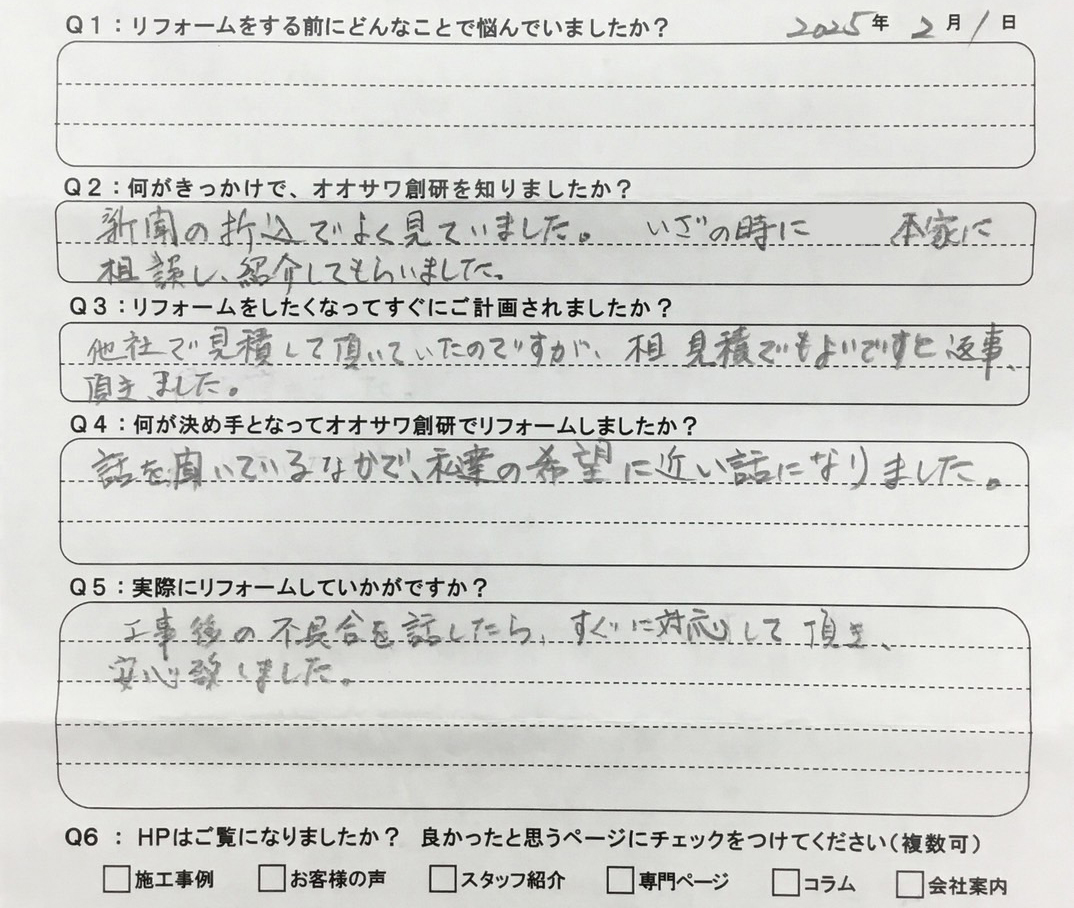 Q1：リフォームをする前にどんなことで悩んでいましたか？ 2025年 2月 1日
Q2：何がきっかけで、オオサワ創研を知りましたか？
新聞の折込でよく見ていました。 いざの時に 本家に
相談し、紹介してもらいました。
Q3：リフォームをしたくなってすぐにご計画されましたか？
他社で見積して頂いていたのですが、相見積でもよいですと返事、
頂きました。
Q4：何が決め手となってオオサワ創研でリフォームしましたか？
話を聞いているなかで、私達の希望に近い話になりました。
Q5：実際にリフォームしていかがですか？
工事後の不具合を話したら、すぐに対応して頂き、
安心致しました。
Q6 ： HPはご覧になりましたか？ 良かったと思うページにチェックをつけてください（複数可）
□施工事例 □お客様の声 □スタッフ紹介 □専門ページ □コラム □会社案内